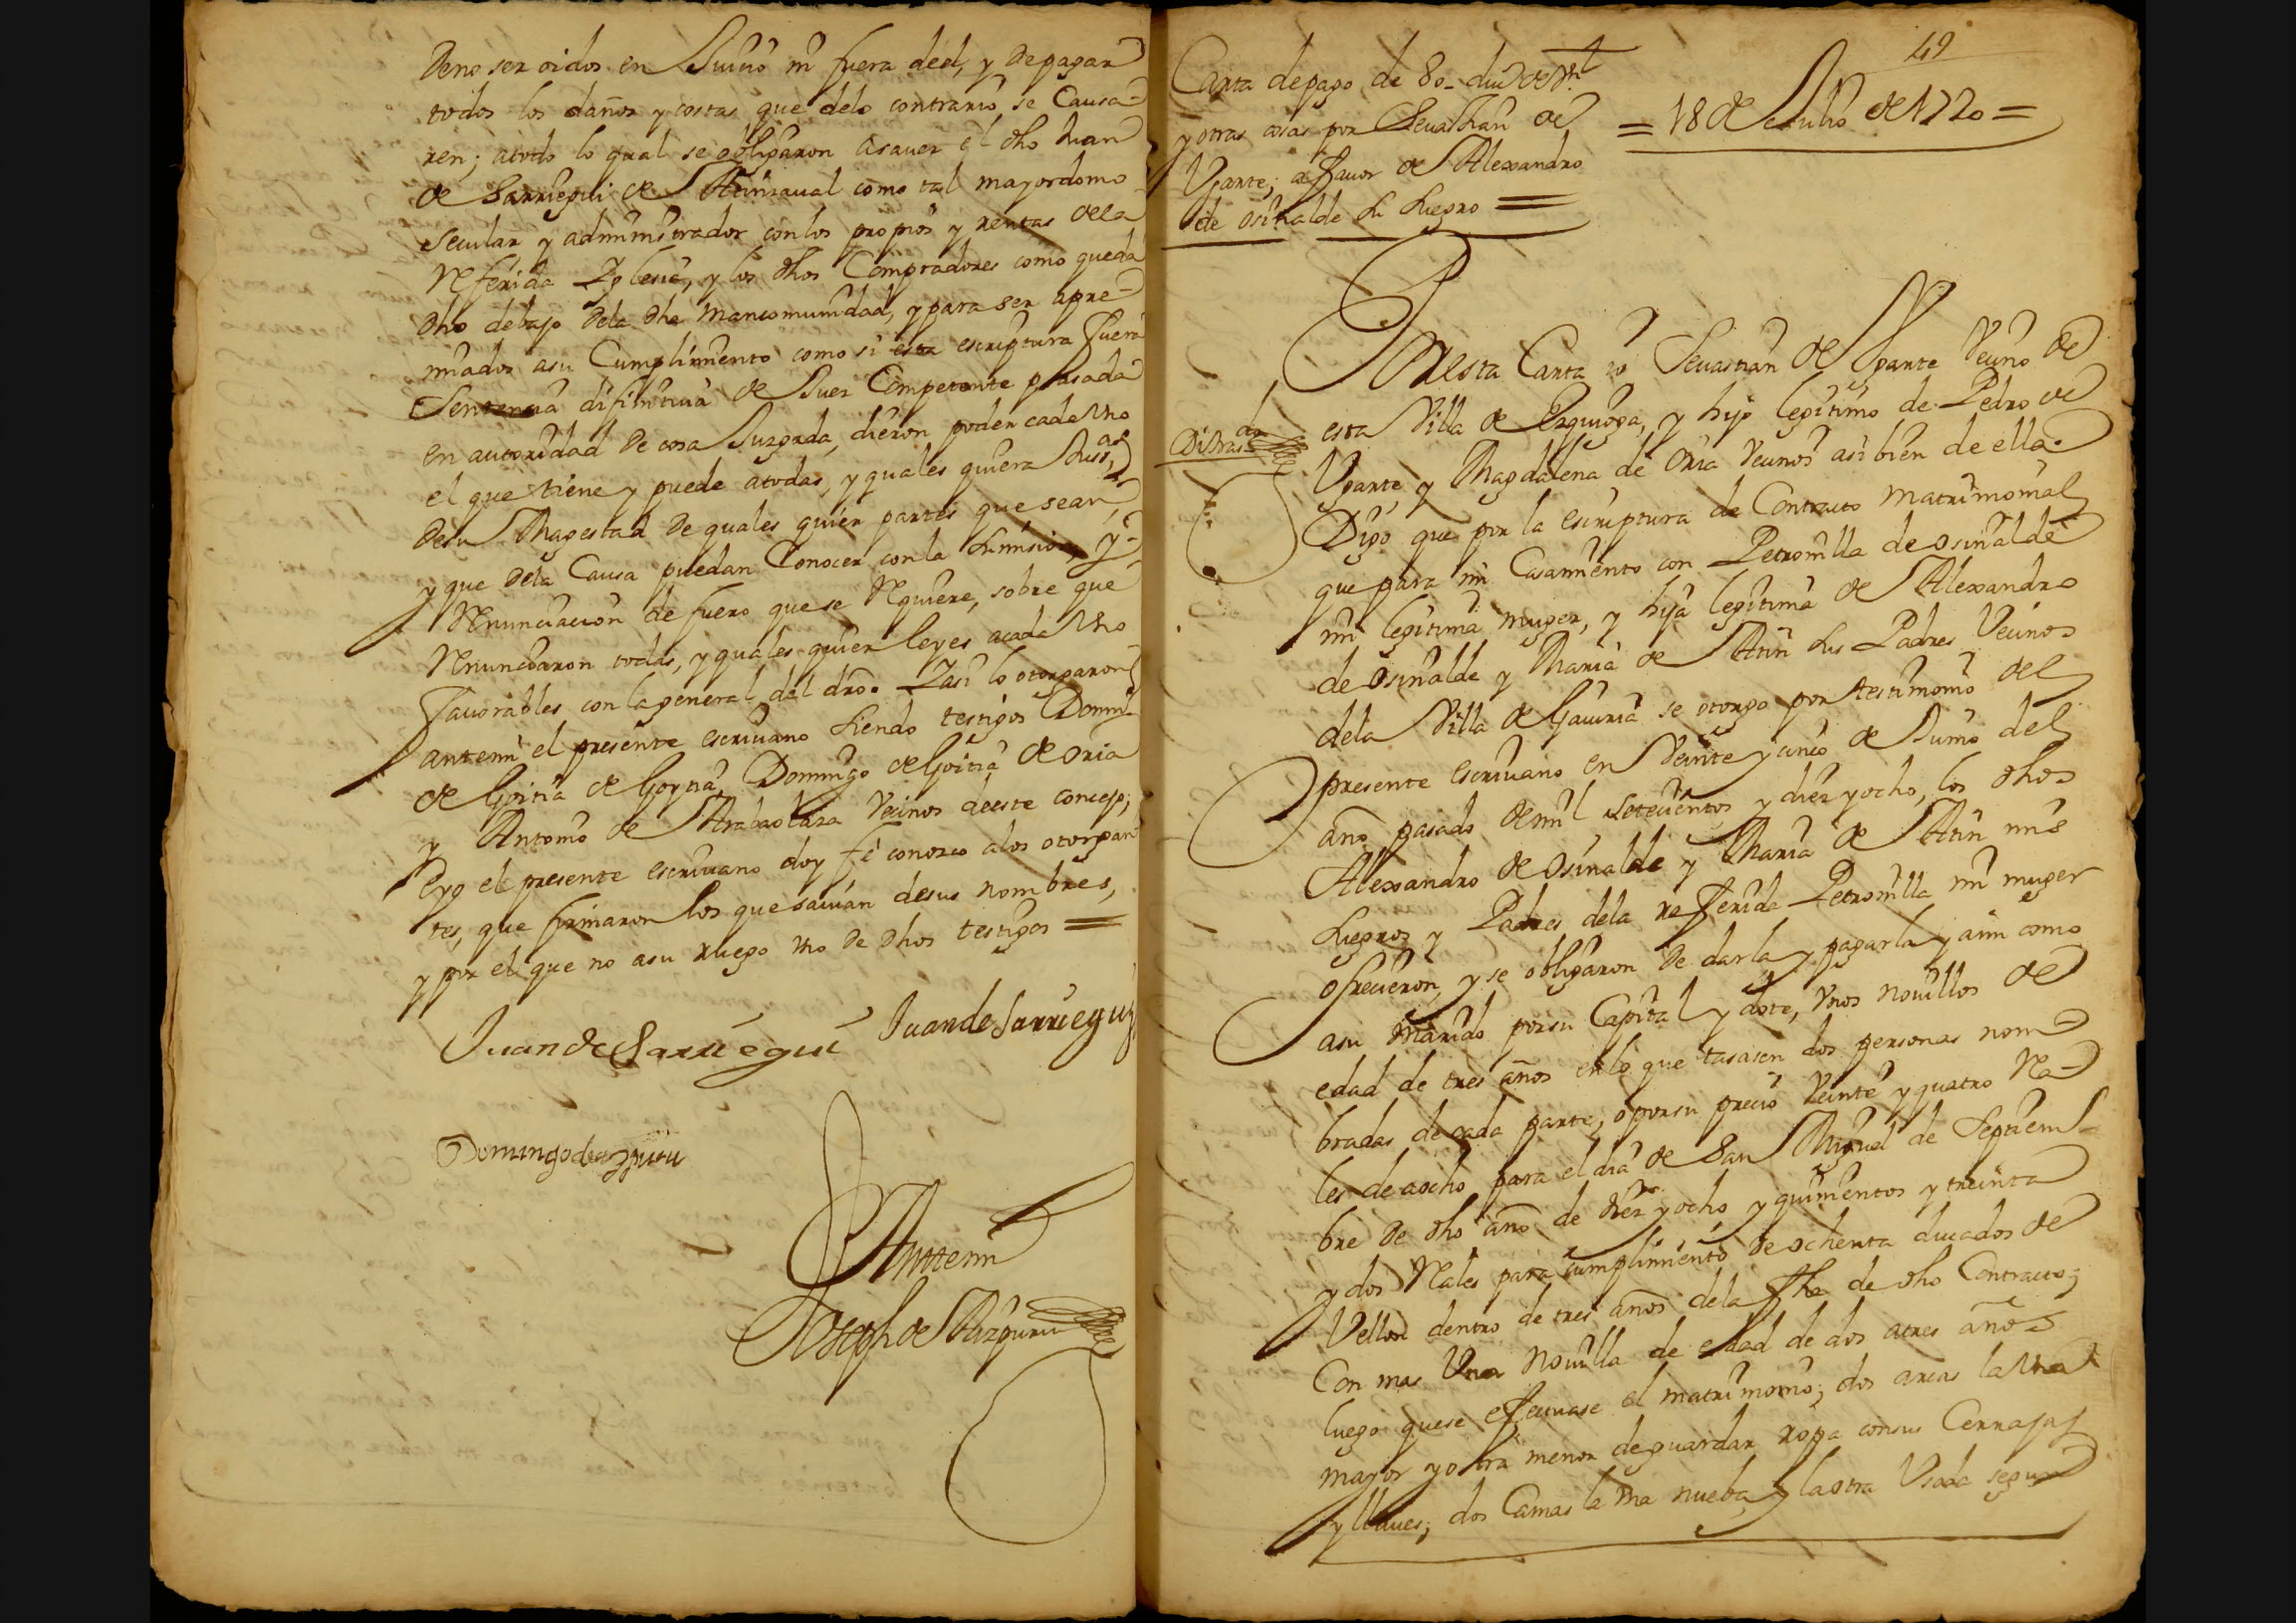 deno ser oidos en Juicio ni fuera del, y de pagar
todos los daños y costas que delo contrario se Causa-
ren; atodo lo qual se obligaron asauer el dho Juan
de Sarriegui de Aeinzaual como tal mayordomo
secular y administrador conlos propios y rentas dela
Referida Iglesia, y los dhos Compradores como queda
dho debajo dela dha mancomunidad, y para ser apre-
miados asu Cumplimiento como si esta escriptura fuera
Sentencia difinitiua de Juez Competente passada
en autoridad de cosa Juzgada, dieron poder cada Vno
el que tiene y puede atodas, y quales quiera Juss.as
desu Magestad de quales quier partes que sean,
y que dela Causa puedan Conocer con la sumision, y
Renunciacion de fuero que se Requiere, sobre que
Renunciaron todas, y quales quier leyes acada Vno
fauorables con la general del dro. Iasi lo otorgaron
antemi el presente escriuano siendo testigos Domin-
de Goitia de Goytia, Domingo de Goitia de Oria
y Antonio de Arabaolaza Vecinos deeste concejo;
Eyo el presente escriuano doy fe conozco alos otorgan-
tes, que firmaron los que sauian desus nombres,
y por el que no asu ruego vno de dhos testigos =
Juan de Sarriegui Juan de Sarriegui
Domingo de
Antemi
Joseph de Aizpuru
49
Carta depago de 80 duc.s de v.n
y otras cosas por Seuastian de
Vgarte; afauor de Alexandro
de Osinalde su suegro =
= 18 de Julio de 1720 =
Por esta Carta yo Seuastian de Vgarte Vecino de
esta Villa de Ezquioga, y hijo legitimo de Pedro de
Vgarte, y Magdalena de Oria Vecinos asi bien de ella.
Digo que por la escriptura de Contracto matrimonial
que para mi Casamiento con Petronilla de Osinalde
mi legitima muger, y hija legitima de Alexandro
de Osinalde y Maria de Atin sus Padres Vecinos
dela Villa de Gauiria se otorgo por testimonio del
presente escriuano en Veinte y cinco de Junio del
año pasado de mil setecientos y diez y ocho, los dhos
Alexandro de Osinalde y Maria de Atin mis
suegros y Padres dela referida Petronilla mi muger
ofrecieron, y se obligaron de darla y pagarla y a mi como
asu Marido por su Capital y dote, Vnos nouillos de
edad de tres años en lo que tasasen dos personas nom-
bradas de cada parte, o por su precio Veinte y quatro Rea-
les de aocho para el dia de San Miguel de Septiem-
bre de dho año de diez y ocho y quinientos y treinta
y dos Reales para cumplimiento de ochenta ducados de
Vellon dentro de tres años dela fha de dho Contracto;
Con mas Vna nouilla de edad de dos atres años
luego que se efectuase el matrimonio; dos arcas la Vna
mayor y otra menor de guardar ropa consus Cerrajas
y llaues; dos Camas la vna nueba y la otra Vsada segun